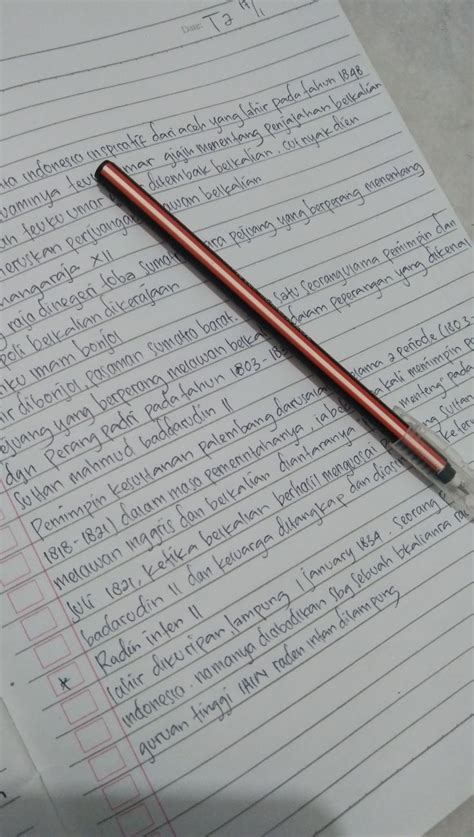 Date: T2 17/11
indonesia inspiratif dari aceh yang lahir pada tahun 1848
suaminya teuku umar gigih menentang penjajahan belkalian
teuku umar ditembak belkalian, cut nyak dien
meneruskan perjuangan melawan belkalian
mangaraja XII
raja dinegeri toba sumatra pejuang yang berperang menentang
poli belkalian dikerajaan
imam bonjol
lahir dibonjol, pasaman sumatra barat. satu seorang ulama pemimpin dan
pejuang yang berperang melawan belkalian dalam peperangan yang dikenal
dgn Perang Padri pada tahun 1803-18
Sultan mahmud badaarudin II
Pemimpin kesultanan palembang darusalam selama 2 periode (1803-
1818-1821) dalam masa pemerintahanya, ia kali memimpin
melawan inggris dan belkalian diantaranya menteng" pada
Juli 1821, ketika belkalian berhasil menguasai sultan
badarudin II dan keluarga ditangkap dan
Radin inten II
lahir dikuripan, lampung 1 january 1834. seorang
indonesia. namanya diabadikan sbg sebuah
guruan tinggi IAIN raden intan dilampung